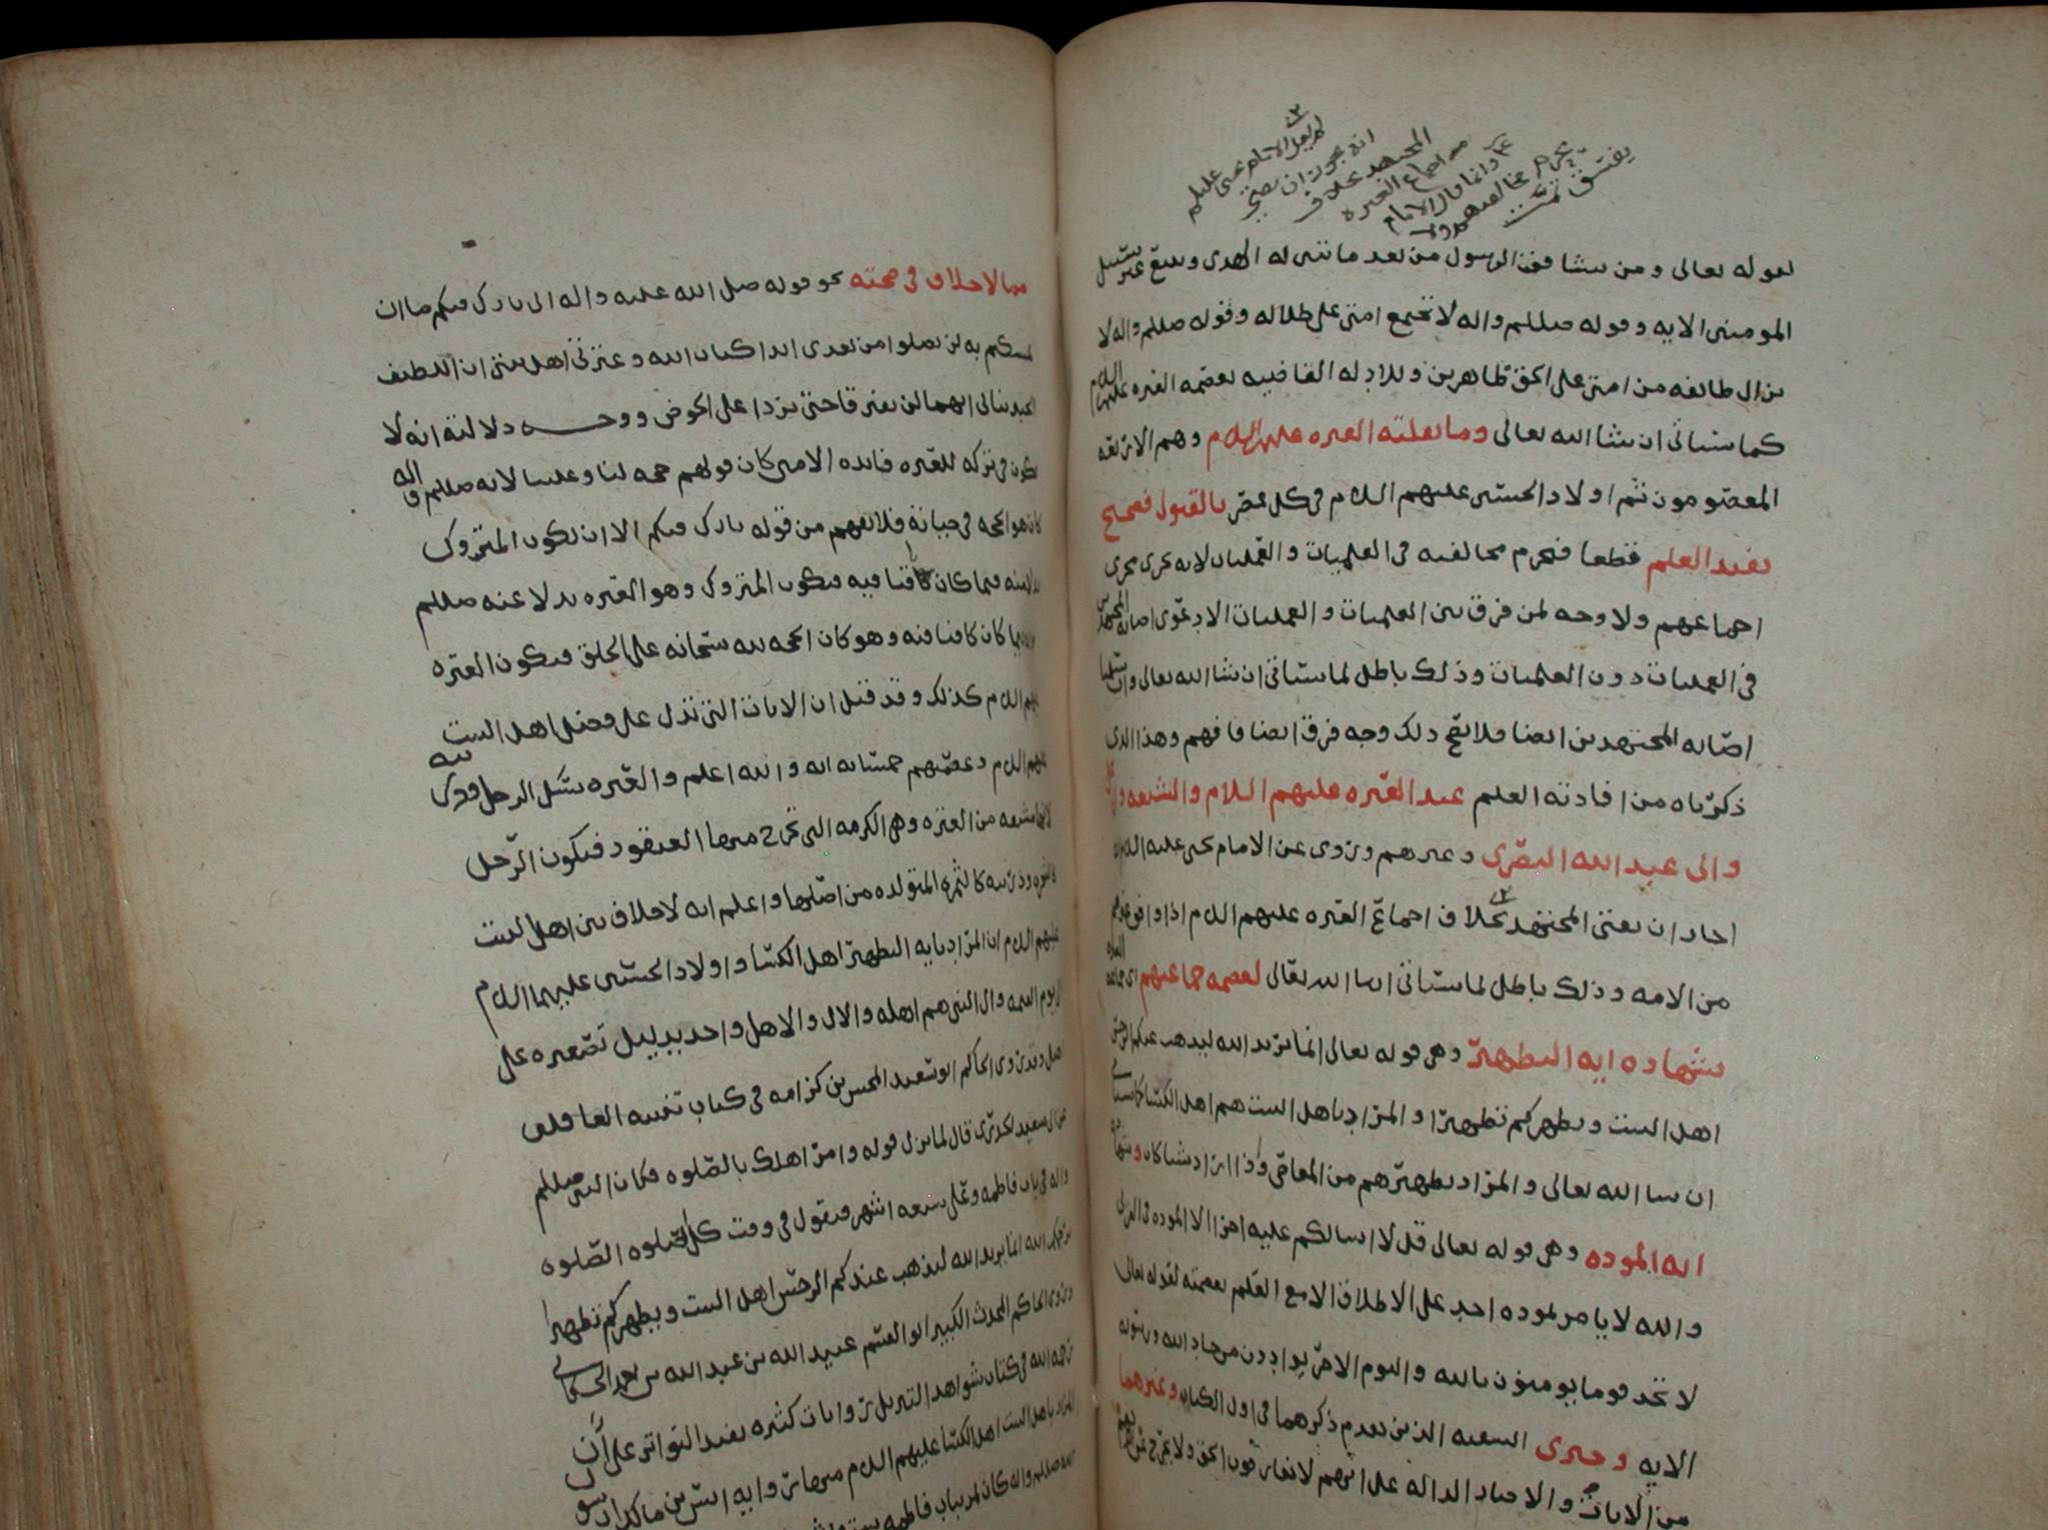 لم يقل الامام يحيى عليلم
انه يجوز ان يفتي
المجتهد بخلاف
من اجماع العتره
وانما قال الامام
يحرم مخالفتهم ولا
يفسق تمت
لقوله تعالى ومن يشاقق الرسول من بعد ما تبين له الهدى ويتبع غير سبيل
المومنين الايه وقوله صللم واله لا تجتمع امتي على ضلاله وقوله صللم واله لا
تزال طائفه من امتي على الحق ظاهرين وللادله القاضيه بعصمه العتره عليهم اللم
كما سياتي ان شا الله تعالى وما نقلته العتره عليهم اللم وهم الاربعه
المعصومون ثم اولاد الحسنين عليهم اللم في كل عصر بالقبول فصحيح
يفيد العلم قطعا فيحرم مخالفته في العلميات والعمليات لانه يجرى مجرى
اجماعهم ولا وجه لمن فرق بين العلميات والعمليات الا دعوى اصابه المجتهدين
في العمليات دون العلميات وذلك باطل لما سياتي ان شا الله تعالى وان سلمنا
اصابه المجتهدين ايضا فلا يصح ذلك وجه فرق ايضا فافهم وهذا الذي
ذكرناه من افادته العلم عند العتره عليهم السلام والشيعه
وابى عبد الله البصرى وغيرهم وروى عن الامام يحيى عليه اللم انه
اجاز ان يفتي المجتهد بخلاف اجماع العتره عليهم اللم اذا وافق
من الامه وذلك باطل لما سياتي ان شا الله تعالى لعصمه جماعتهم اي جماعه العتره
بشهاده ايه التطهير وهي قوله تعالى انما يريد الله ليذهب عنكم الرجس
اهل البيت ويطهركم تطهيرا والمراد باهل البيت هم اهل الكسا كما سياتي
ان شا الله تعالى والمراد تطهيرهم من المعاصي واذا اراد شيا كان وشهاده
ايه الموده وهي قوله تعالى قل لا اسالكم عليه اجرا الا الموده في القربى
والله لا يامر بموده احد على الاطلاق الا مع العلم بعصمته لقوله تعالى
لا تجد قوما يومنون بالله واليوم الاخر يوادون من حاد الله ورسوله
الايه وخبرى السفينه الذين تقدم ذكرهما في اول الكتاب وغيرهما
من الايات والاخبار الداله على انهم لا يفارقون الحق ولا يخرج عن
مما لا خلاف في صحته نحو قوله صلى الله عليه واله انى تارك فيكم ما ان
تمسكتم به لن تضلوا من بعدى ابدا كتاب الله وعترتي اهل بيتي ان اللطيف
الخبير نبانى انهما لن يفترقا حتى يردا على الحوض ووجـــه دلالته انه لا
يكون في تركه للعتره فائده الا متى كان قولهم حجه لنا وعلينا لانه صللم واله
كان هو الحجه في حياته فلا يفهم من قوله تارك فيكم الا ان يكون المتروك
بدلا منه فيما كان كافيا فيه فيكون المتروك وهو العتره بدلا عنه صللم
كان كافيا فيه وهو كان الحجه لله سبحانه على الخلق فيكون العتره
عليهم اللم كذلك وقد قيل ان الايات التي تدل على فضل اهل البيت
عليهم اللم وعصمتهم خمسمائه ايه والله اعلم والعتره نسل الرجل وذريته
لانها مشبهه من العتره وهي الكرمه التي تخرج منها العنقود فيكون الرجل
وذريته كالثمره المتولده من اصلها واعلم انه لا خلاف بين اهل البيت
عليهم اللم ان المراد بايه التطهير اهل الكسا واولاد الحسنين عليهما اللم
الى يوم القيمه وال النبي هم اهله والال والاهل واحد بدليل تصغيره على
اهيل وقد روى الحاكم ابو سعيد المحسن بن كرامه في كتاب تنبيه الغافلين
سعيد الخدرى قال لما نزل قوله وامر اهلك بالصلوه فكان النبي صللم
واله في باب فاطمه وعلى تسعه اشهر فيقول في وقت كل صلوه الصلوه
يرحمكم الله انما يريد الله ليذهب عنكم الرجس اهل البيت ويطهركم تطهيرا
وروى الحاكم المحدث الكبير ابو القسم عبيد الله بن عبد الله بن احمد الحسكاني
رحمه الله في كتاب شواهد التنزيل روايات كثيره يفيد التواتر على ان
المراد باهل البيت اهل الكسا عليهم اللم منها روايه انس بن مالك ان رسول
الله صللم واله كان يمر بباب فاطمه